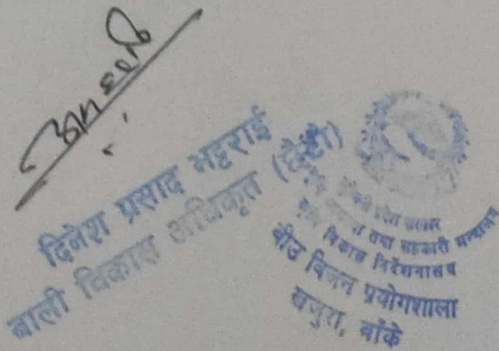 दिनेश प्रसाद भट्टराई
बाली विकास अधिकृत (छैटौं)
प्रदेश सरकार
तथा सहकारी मन्त्रालय
विकास निर्देशनालय
बीउ बिजन प्रयोगशाला
खजुरा, बाँके